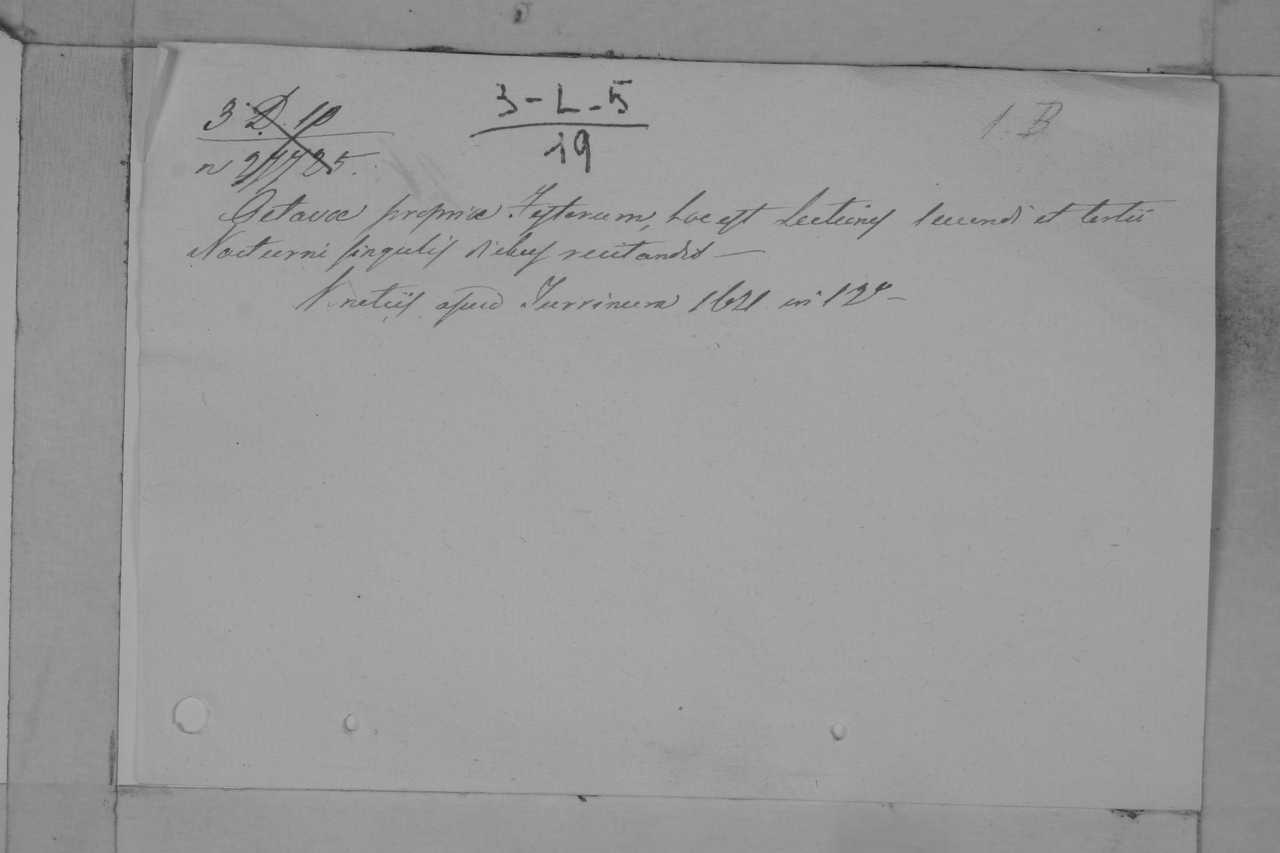 3. D. 10
n 27725.
3-L-5
19
1. B
Octavae propriae Festorum, hoc est Lectiones secundi et tertii
Nocturni singulis diebus recitandis —
Venetiis apud Turrinum 1641 in 12° —